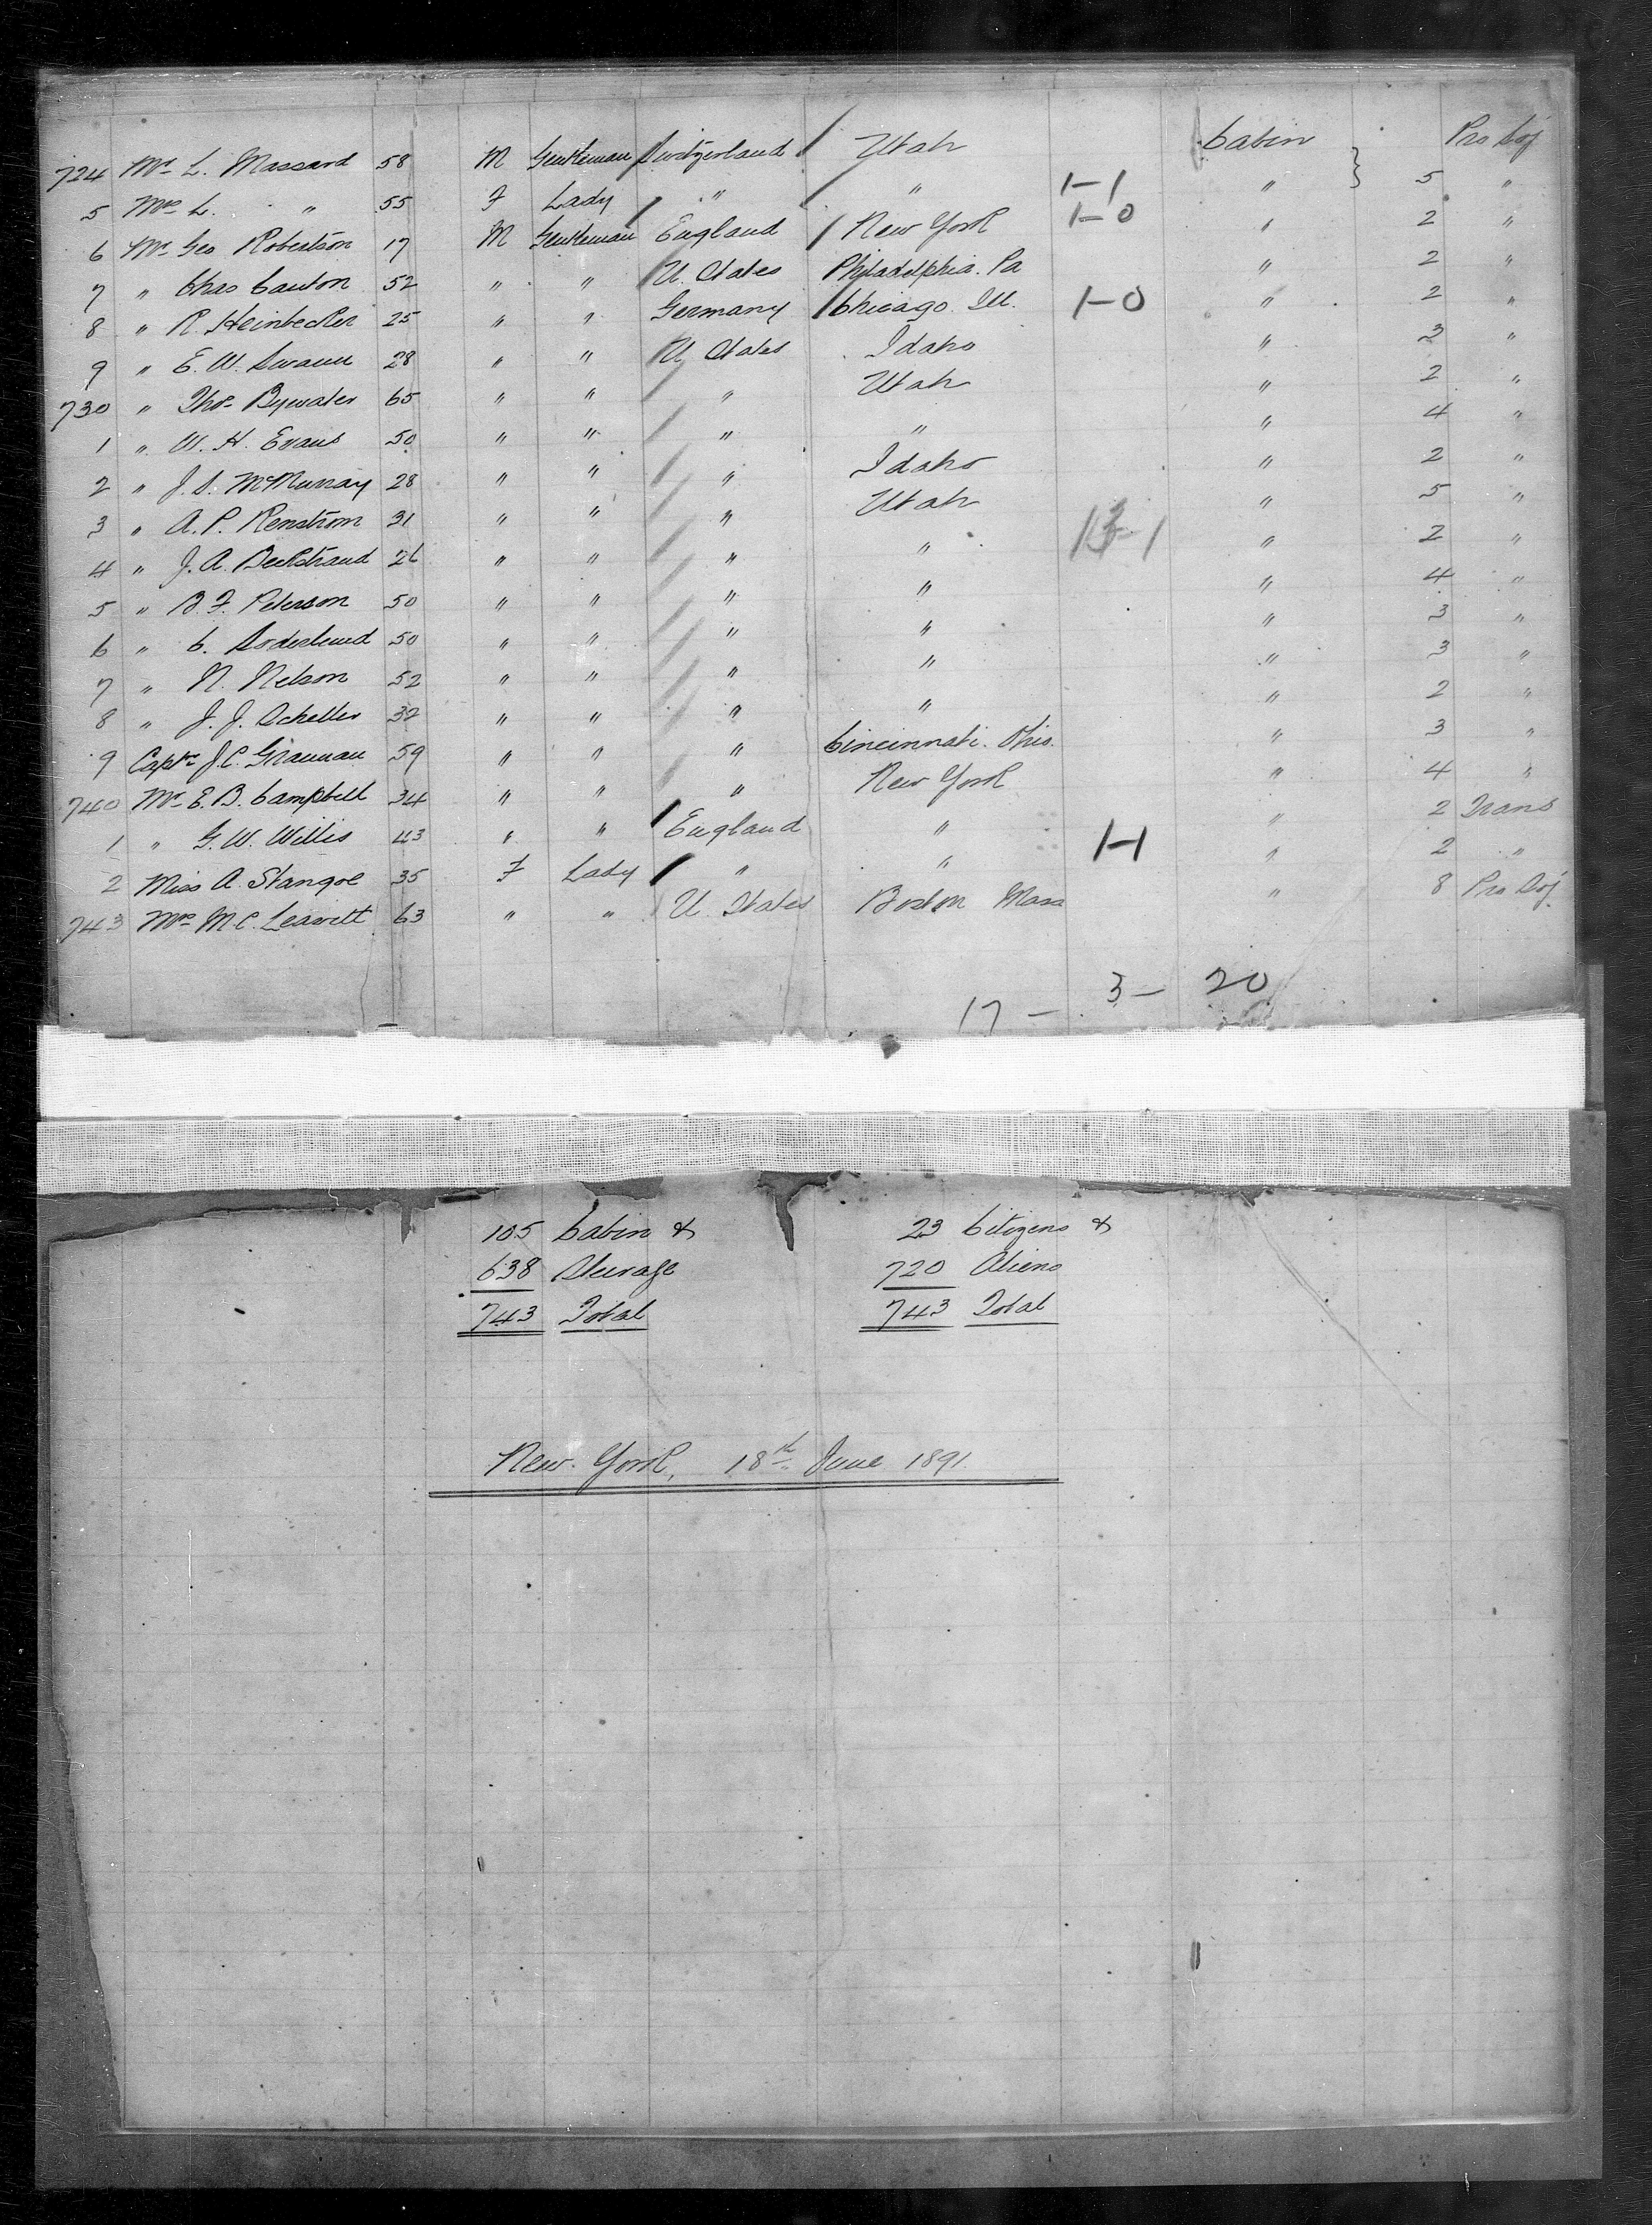 724 Mr L. Massard 58 M Gentleman Switzerland Utah Cabin Pro Soj
5 Mrs L. " 55 F Lady " " 1-1 " 5 "
6 Mr Geo Robertson 17 M Gentleman England New York 1-0 " 2 "
7 " Chas Cauton 52 " " U. States Philadelphia. Pa " 2 "
8 " R. Heinbecker 25 " " Germany Chicago. Ill. 1-0 " 2 "
9 " E. W. Swann 28 " " U. States Idaho " 3 "
730 " Thos Bywater 65 " " " Utah " 2 "
1 " W. H. Evans 50 " " " " " 4 "
2 " J. S. McMurray 28 " " " Idaho " 2 "
3 " A. P. Renstrom 31 " " " Utah " 5 "
4 " J. A. Beckstrand 26 " " " " " 2 "
5 " B. F. Peterson 50 " " " " " 4 "
6 " C. Soderlund 50 " " " " " 3 "
7 " N. Nelson 52 " " " " " 3 "
8 " J. J. Scheller 32 " " " " " 2 "
9 Captn J. C. Grauman 59 " " " Cincinnati. Ohio. " 3 "
740 Mr E. B. Campbell 34 " " " New York " 4 "
1 " G. W. Willis 43 " " England " " 2 Trans
2 Miss A. Stangoe 35 F Lady " " 1-1 " 2 "
743 Mrs M. C. Leavitt 63 " " U. States Boston Mass " 8 Pro Soj.
17 - 3 - 20
105 Cabin & 23 Citizens &
638 Steerage 720 Aliens
743 Total 743 Total
New York, 18th June 1891.